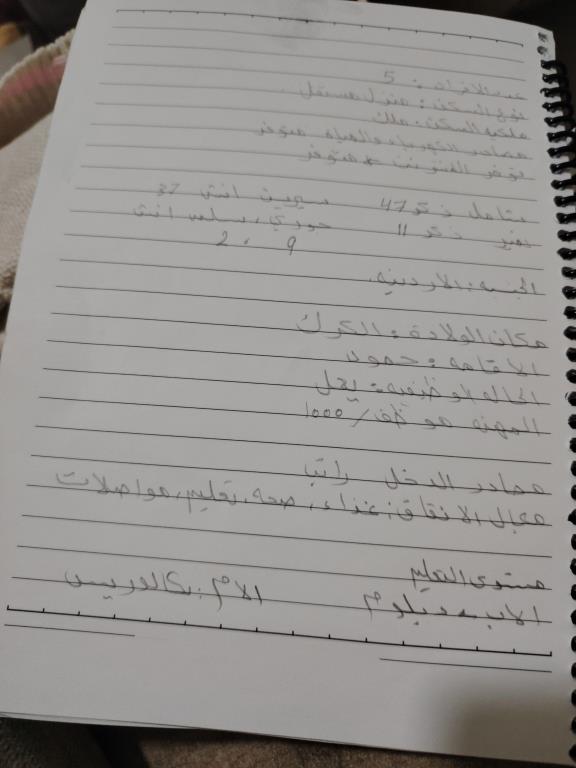 عدد الافراد : 5
نوع السكن : منزل مستقل
ملكية السكن : ملك
مصادر الكهرباء والمياه متوفر
توفر الانترنت متوفر
ذكر 47 سيرين انثى 37
ذكر 11 جوري ، سلمى انثى
9 ، 2
الجنسيه : الاردنيه
مكان الولادة : الكرك
الاقامه : حمود
الحاله الوظيفيه : يعمل
المهنه موظف / 1000
مصادر الدخل راتب
مجال الانفاق : غذاء ، صحه ، تعليم ، مواصلات
مستوى التعليم
الاب : دبلوم الام : بكالوريس